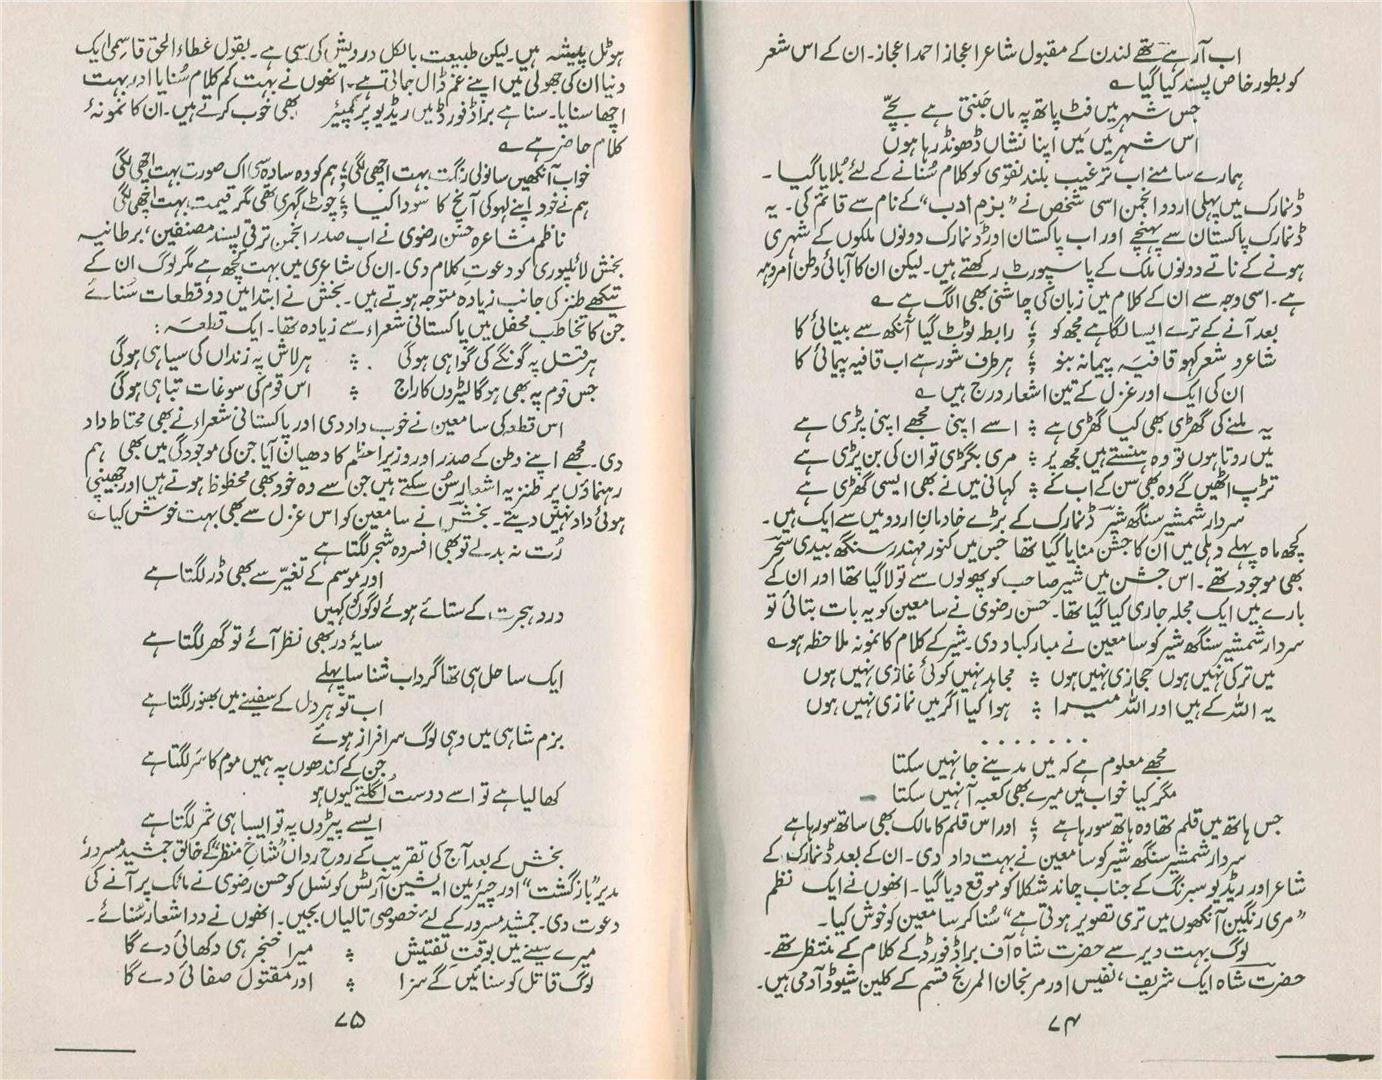 اب آرہے تھے لندن کے مقبول شاعر اعجاز احمد اعجاز۔ ان کے اس شعر
کو بطور خاص پسند کیا گیا ؎
جس شہر میں فٹ پاتھ پہ ماں جَنتی ہے بچّے
اس شہر میں مَیں اپنا نشاں ڈھونڈ رہا ہوں
ہمارے سامنے اب ترغیب بلند نقوی کو کلام سُنانے کے لئے بُلایا گیا ۔
ڈنمارک میں پہلی اردو انجمن اسی شخص نے "بزم ادب" کے نام سے قائم کی۔ یہ
ڈنمارک پاکستان سے پہنچے اور اب پاکستان اور ڈنمارک دونوں ملکوں کے شہری
ہونے کے ناتے دونوں ملک کے پاسپورٹ رکھتے ہیں۔ لیکن ان کا آبائی وطن امروہہ
ہے۔ اسی وجہ سے ان کے کلام میں زبان کی چاشنی بھی الگ ہے ؎
بعد آنے کے ترے ایسا لگا ہے مجھ کو ؛ رابطہ ٹوٹ گیا آنکھ سے بینائی کا
شاعرو شعر کہو قافیہ پیمانہ بنو ؛ ہر طرف شور ہے اب قافیہ پیمائی کا
ان کی ایک اور غزل کے تین اشعار درج ہیں ؎
یہ ملنے کی گھڑی بھی کیا گھڑی ہے ؛ اسے اپنی مجھے اپنی پڑی ہے
میں روتا ہوں تو وہ ہنستے ہیں مجھ پر ؛ مری بگڑی تو ان کی بن پڑی ہے
تڑپ اٹھیں گے وہ بھی سن کے اب کے ؛ کہانی میں نے بھی ایسی گھڑی ہے
سردار شمشیر سنگھ شیر ڈنمارک کے بڑے خادمان اردو میں سے ایک ہیں۔
کچھ ماہ پہلے دہلی میں ان کا جشن منایا گیا تھا جس میں کنور مہندر سنگھ بیدی سحر
بھی موجود تھے۔ اس جشن میں شیر صاحب کو پھولوں سے تولا گیا تھا اور ان کے
بارے میں ایک مجلہ جاری کیا گیا تھا۔ حسن رضوی نے سامعین کو یہ بات بتائی تو
سردار شمشیر سنگھ شیر کو سامعین نے مبارکباد دی۔ شیر کے کلام کا نمونہ ملاحظہ ہو ؎
میں ترکی نہیں ہوں حجازی نہیں ہوں ؛ مجاہد نہیں کوئی غازی نہیں ہوں
یہ اللہ کے ہیں اور اللہ میرا ؛ ہوا کیا اگر میں نمازی نہیں ہوں
. . . . . . .
مجھے معلوم ہے کہ میں مدینے جا نہیں سکتا
مگر کیا خواب میں میرے بھی کعبہ آ نہیں سکتا
جس ہاتھ میں قلم تھا وہ ہاتھ سو رہا ہے ؛ اور اس قلم کا مالک بھی ساتھ سو رہا ہے
سردار شمشیر سنگھ شیر کو سامعین نے بہت داد دی۔ ان کے بعد ڈنمارک کے
شاعر اور ریڈیو سبرنگ کے جناب چاند شکلا کو موقع دیا گیا۔ انھوں نے ایک نظم
"مری رنگین آنکھوں میں تری تصویر ہوتی ہے" سُنا کر سامعین کو خوش کیا۔
لوگ بہت دیر سے حضرت شاہ آف براڈفورڈ کے کلام کے منتظر تھے۔
حضرت شاہ ایک شریف، نفیس اور مرنجان المرنج قسم کے کلین شیوڈ آدمی ہیں۔
۷۴
ہوٹل پیشہ ہیں۔ لیکن طبیعت بالکل درویش کی سی ہے۔ بقول عطاء الحق قاسمی ایک
دنیا ان کی جھولی میں اپنے غم ڈال جاتی ہے۔ انھوں نے بہت کم کلام سُنایا اور بہت
اچھا سنایا۔ سنا ہے براڈفورڈ میں ریڈیو پر کمپیئر بھی خوب کرتے ہیں۔ ان کا نمونۂ
کلام حاضر ہے ؎
خواب آنکھیں سانولی رنگت بہت اچھی لگی ؛ ہم کو وہ سادہ سی اک صورت بہت اچھی لگی
ہم نے خود اپنے لہو کی آنچ کا سودا کیا ؛ چوٹ گہری تھی مگر قیمت بہت اچھی لگی
ناظم مشاعرہ حسن رضوی نے اب صدر انجمن ترقی پسند مصنفین، برطانیہ
بخش لائلپوری کو دعوتِ کلام دی۔ ان کی شاعری میں بہت کچھ ہے مگر لوگ ان کے
تیکھے طنز کی جانب زیادہ متوجہ ہوتے ہیں۔ بخش نے ابتدا میں دو قطعات سُنائے
جن کا تخاطب محفل میں پاکستانی شعراء سے زیادہ تھا۔ ایک قطعہ :
ہر قتل پہ گونگے کی گواہی ہوگی ؛ ہر لاش پہ زنداں کی سیاہی ہوگی
جس قوم پہ بھی ہوگا لیٹروں کا راج ؛ اس قوم کی سوغات تباہی ہوگی
اس قطعہ کی سامعین نے خوب داد دی اور پاکستانی شعراء نے بھی محتاط داد
دی۔ مجھے اپنے وطن کے صدر اور وزیر اعظم کا دھیان آیا جن کی موجودگی میں بھی ہم
رہنماؤں پر طنزیہ اشعار سُن سکتے ہیں جن سے وہ خود بھی محظوظ ہوتے ہیں اور جھینپی
ہوئی داد نہیں دیتے۔ بخش نے سامعین کو اس غزل سے بھی بہت خوش کیا ؎
رُت نہ بدلے تو بھی افسردہ شجر لگتا ہے
اور موسم کے تغیّر سے بھی ڈر لگتا ہے
درد ہجرت کے ستائے ہوئے لوگوں کو کہیں
سایۂ در بھی نظر آئے تو گھر لگتا ہے
ایک ساحل ہی تھا گرداب شناسا پہلے
اب تو ہر دل کے سفینے میں بھنور لگتا ہے
بزم شاہی میں وہی لوگ سرافراز ہوئے
جن کے کندھوں پہ ہمیں موم کا سَر لگتا ہے
کھا لیا ہے تو اسے دوست اُگلتے کیوں ہو
ایسے پیڑوں پہ تو ایسا ہی ثمر لگتا ہے
بخش کے بعد آج کی تقریب کے روح رواں "شاخِ منظر" کے خالق جمشید مسرور،
مدیر "بازگشت" اور چیئرمین ایشین آرٹس کونسل کو حسن رضوی نے مائک پر آنے کی
دعوت دی۔ جمشید مسرور کے لئے خصوصی تالیاں بجیں۔ انھوں نے دو اشعار سُنائے۔
میرے سینے میں بوقتِ تفتیش ؛ میرا خنجر ہی دکھائی دے گا
لوگ قاتل کو سنائیں گے سزا ؛ اور مقتول صفائی دے گا
۷۵